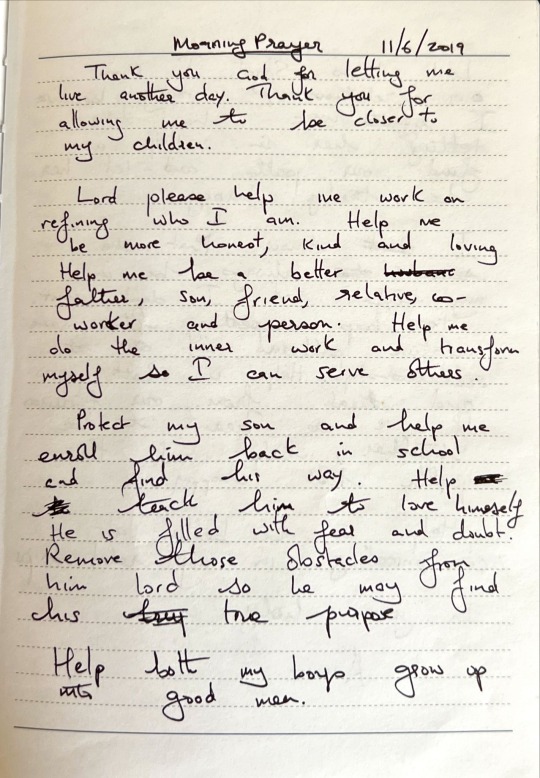 Morning Prayer 11/6/2019
Thank you God for letting me
live another day. Thank you for
allowing me to be closer to
my children.
Lord please help me work on
refining who I am. Help me
be more honest, kind and loving
Help me be a better husband
father, son, friend, relative, co-
worker and person. Help me
do the inner work and transform
myself so I can serve others.
Protect my son and help me
enroll him back in school
and find his way. Help
teach him to love himself
He is filled with fear and doubt.
Remove those obstacles from
him lord so he may find
his true purpose
Help both my boys grow up
into good men.